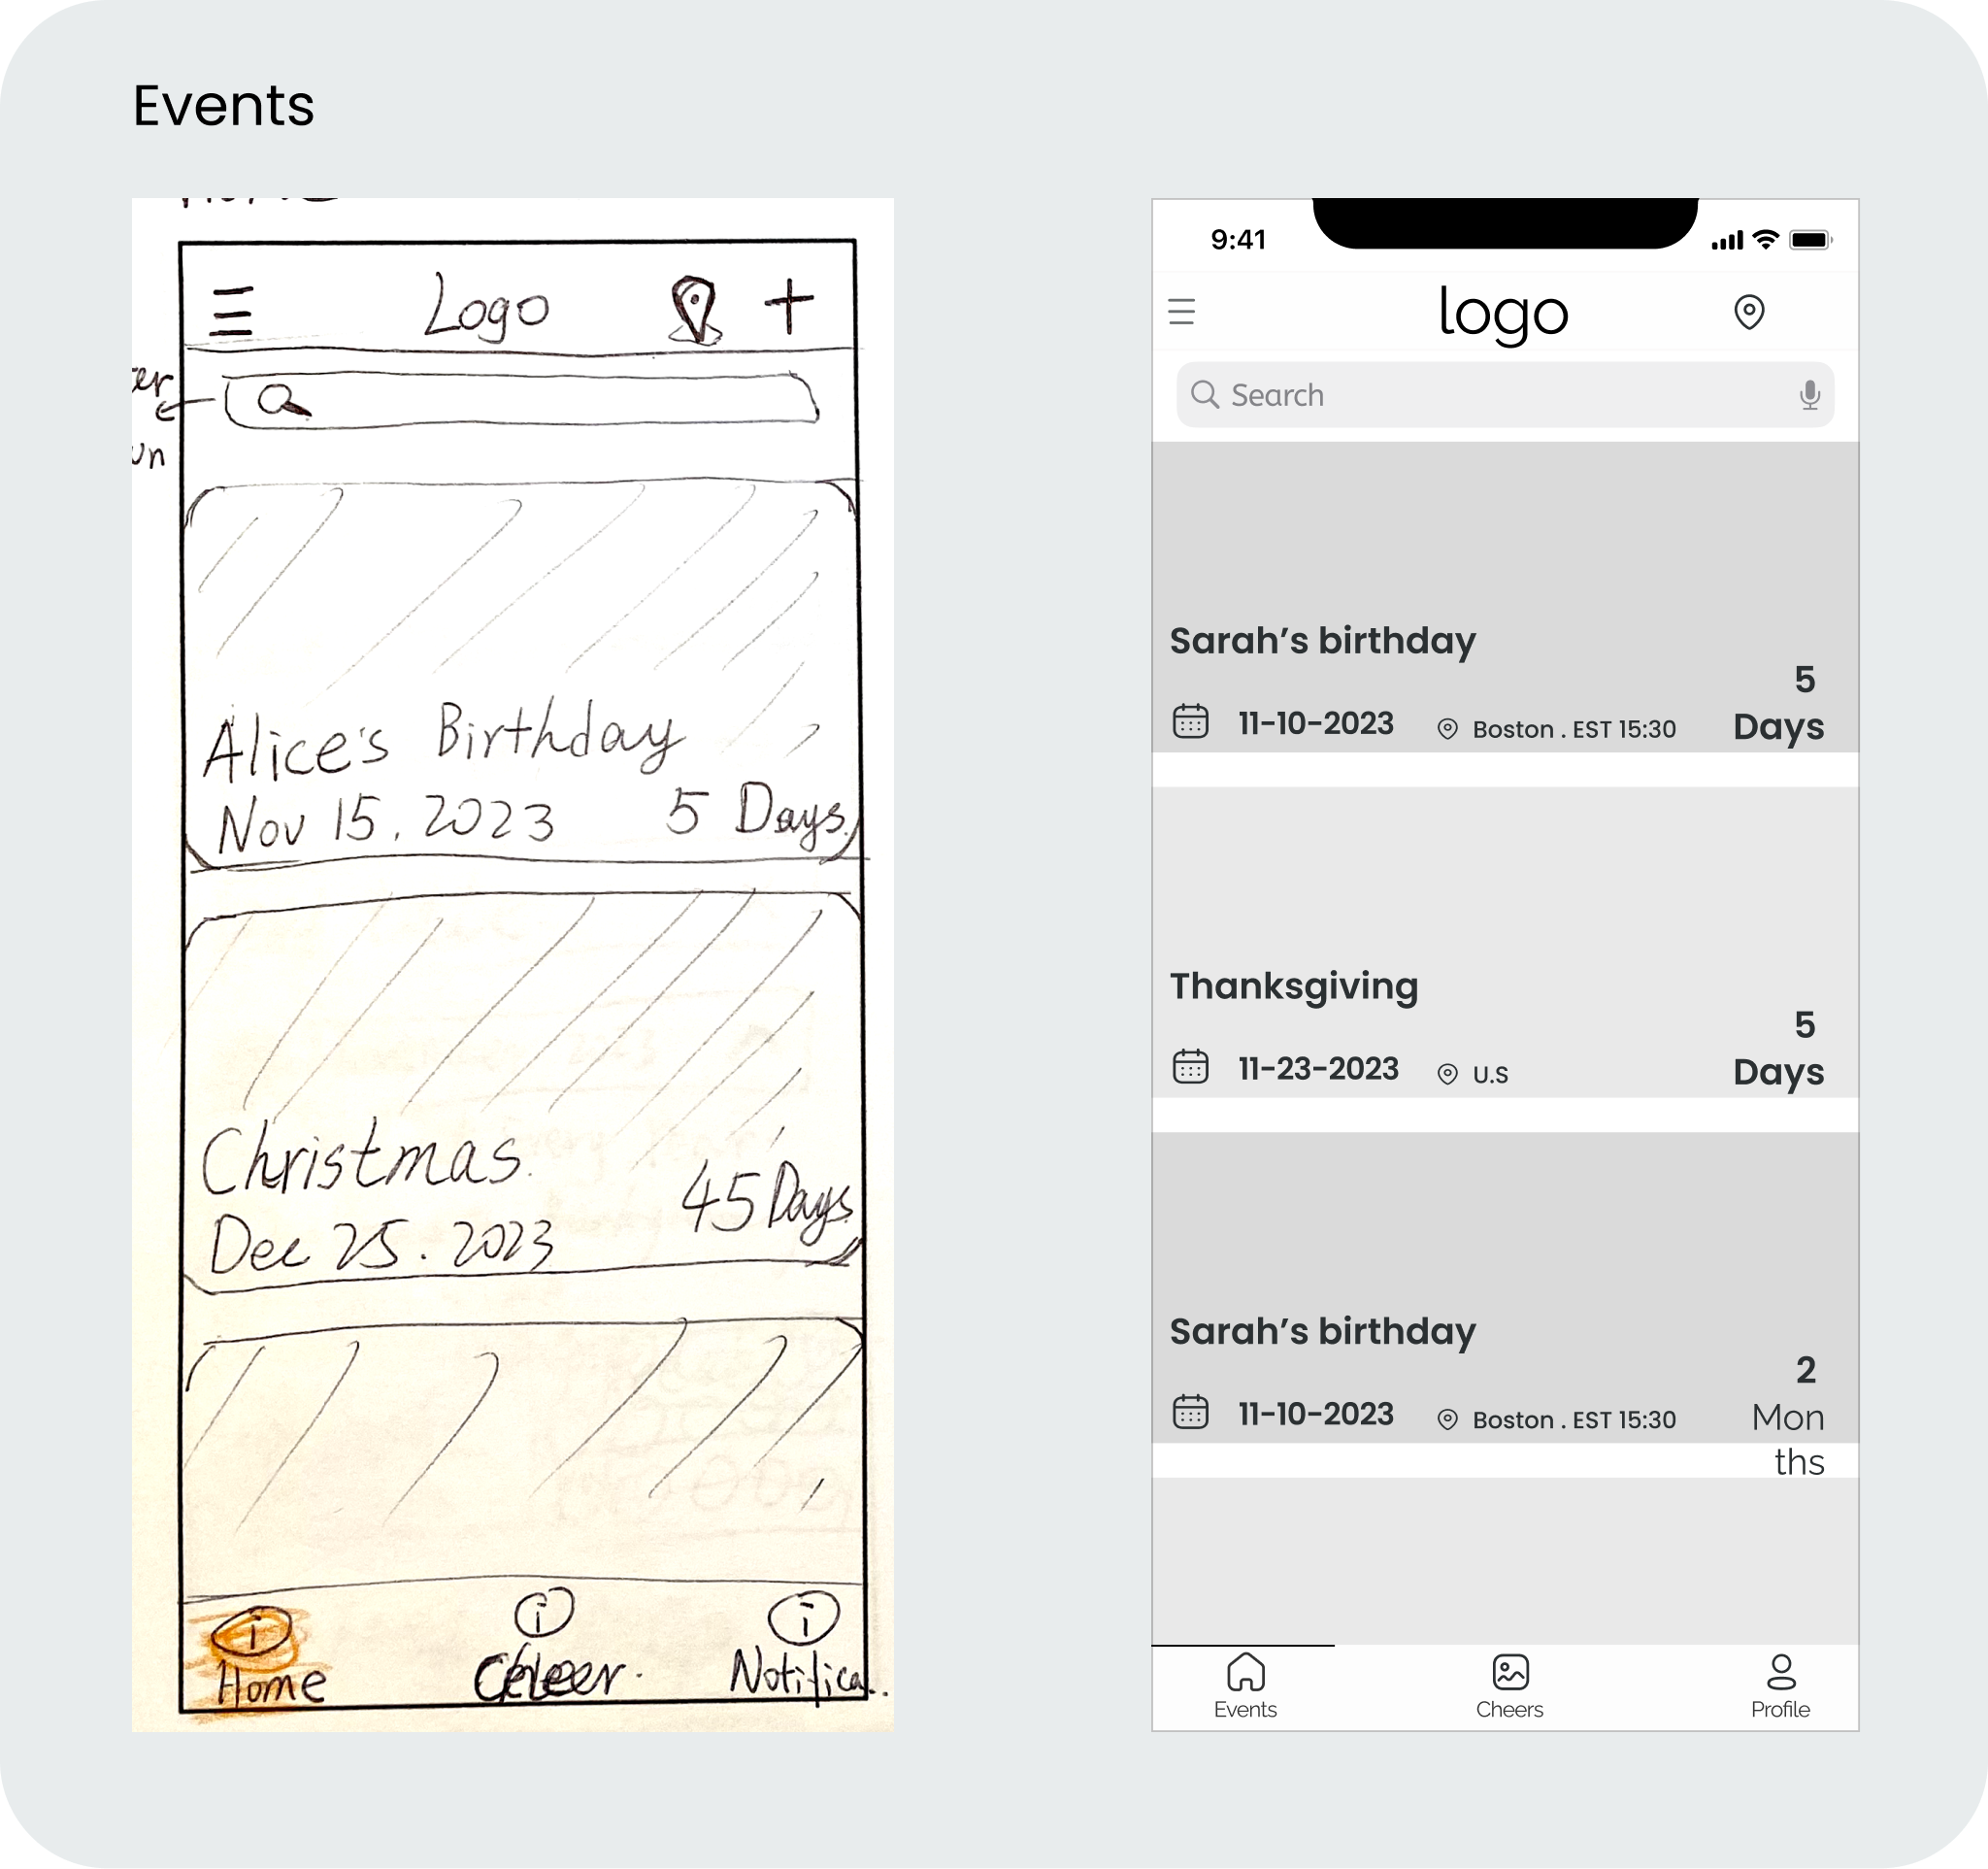 Events
Logo +
Alice's Birthday
Nov 15. 2023 5 Days.
Christmas.
45 Days
Dec 25. 2023
Home Notifica..
9:41
logo
Search
Sarah’s birthday
5
11-10-2023 Boston . EST 15:30 Days
Thanksgiving
5
11-23-2023 U.S Days
Sarah’s birthday
2
11-10-2023 Boston . EST 15:30 Mon
ths
Events Cheers Profile